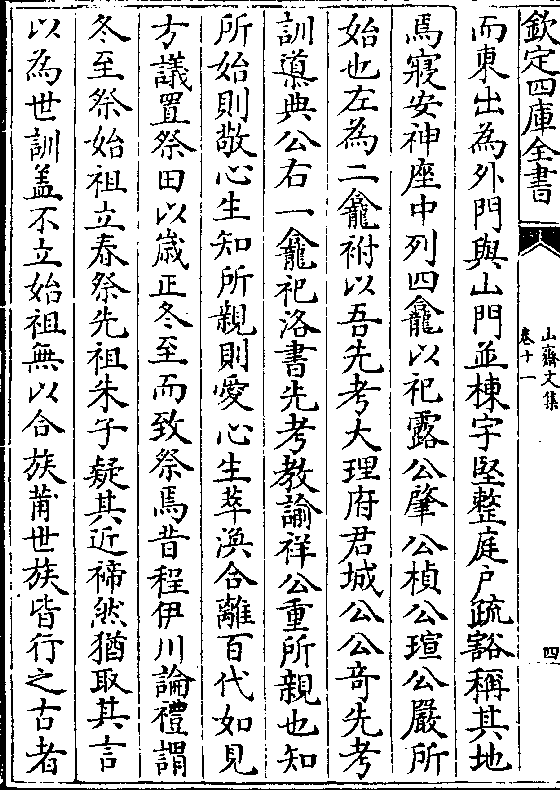 欽定四庫全書
山齋文集
卷十一
四
而東出為外門與山門並棟宇堅整庭戶疏豁稱其地
焉寢安神座中列四龕以祀露公肇公楨公瑄公嚴所
始也左為二龕祔以吾先考大理府君城公公奇先考
訓導典公右一龕祀洛書先考教諭祥公重所親也知
所始則敬心生知所親則愛心生萃渙合離百代如見
方議置祭田以歲正冬至而致祭焉昔程伊川論禮謂
冬至祭始祖立春祭先祖朱子疑其近禘然猶取其言
以為世訓葢不立始祖無以合族莆世族皆行之古者